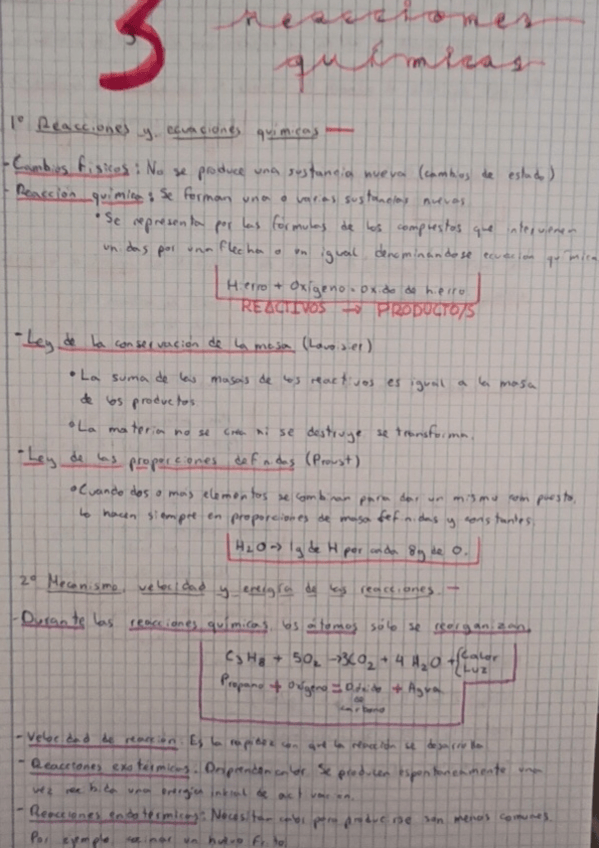 5 reacciones
químicas
1º Reacciones y ecuaciones químicas —
- Cambios físicos: No se produce una sustancia nueva (cambios de estado)
- Reacción química: Se forman una o varias sustancias nuevas
• Se representa por las fórmulas de los compuestos que intervienen
unidas por una flecha o un igual denominándose ecuación química
Hierro + Oxígeno = Oxido de hierro
REACTIVOS → PRODUCTO/S
- Ley de la conservación de la masa (Lavoisier)
• La suma de las masas de los reactivos es igual a la masa
de los productos
• La materia no se crea ni se destruye se transforma.
- Ley de las proporciones definidas (Proust)
• Cuando dos o más elementos se combinan para dar un mismo compuesto,
lo hacen siempre en proporciones de masa definidas y constantes.
H₂O → 1g de H por cada 8g de O.
2º Mecanismo, velocidad y energía de las reacciones. —
- Durante las reacciones químicas, los átomos sólo se reorganizan.
C₃H₈ + 5O₂ → 3CO₂ + 4 H₂O + { Calor
Luz
Propano + Oxígeno = Dióxido + Agua
de
carbono
- Velocidad de reacción: Es la rapidez con que la reacción se desarrolla
- Reacciones exotérmicas: Desprenden calor. Se producen espontáneamente una
vez recibida una energía inicial de activación.
- Reacciones endotérmicas: Necesitan calor para producirse son menos comunes.
Por ejemplo, cocinar un huevo frito.